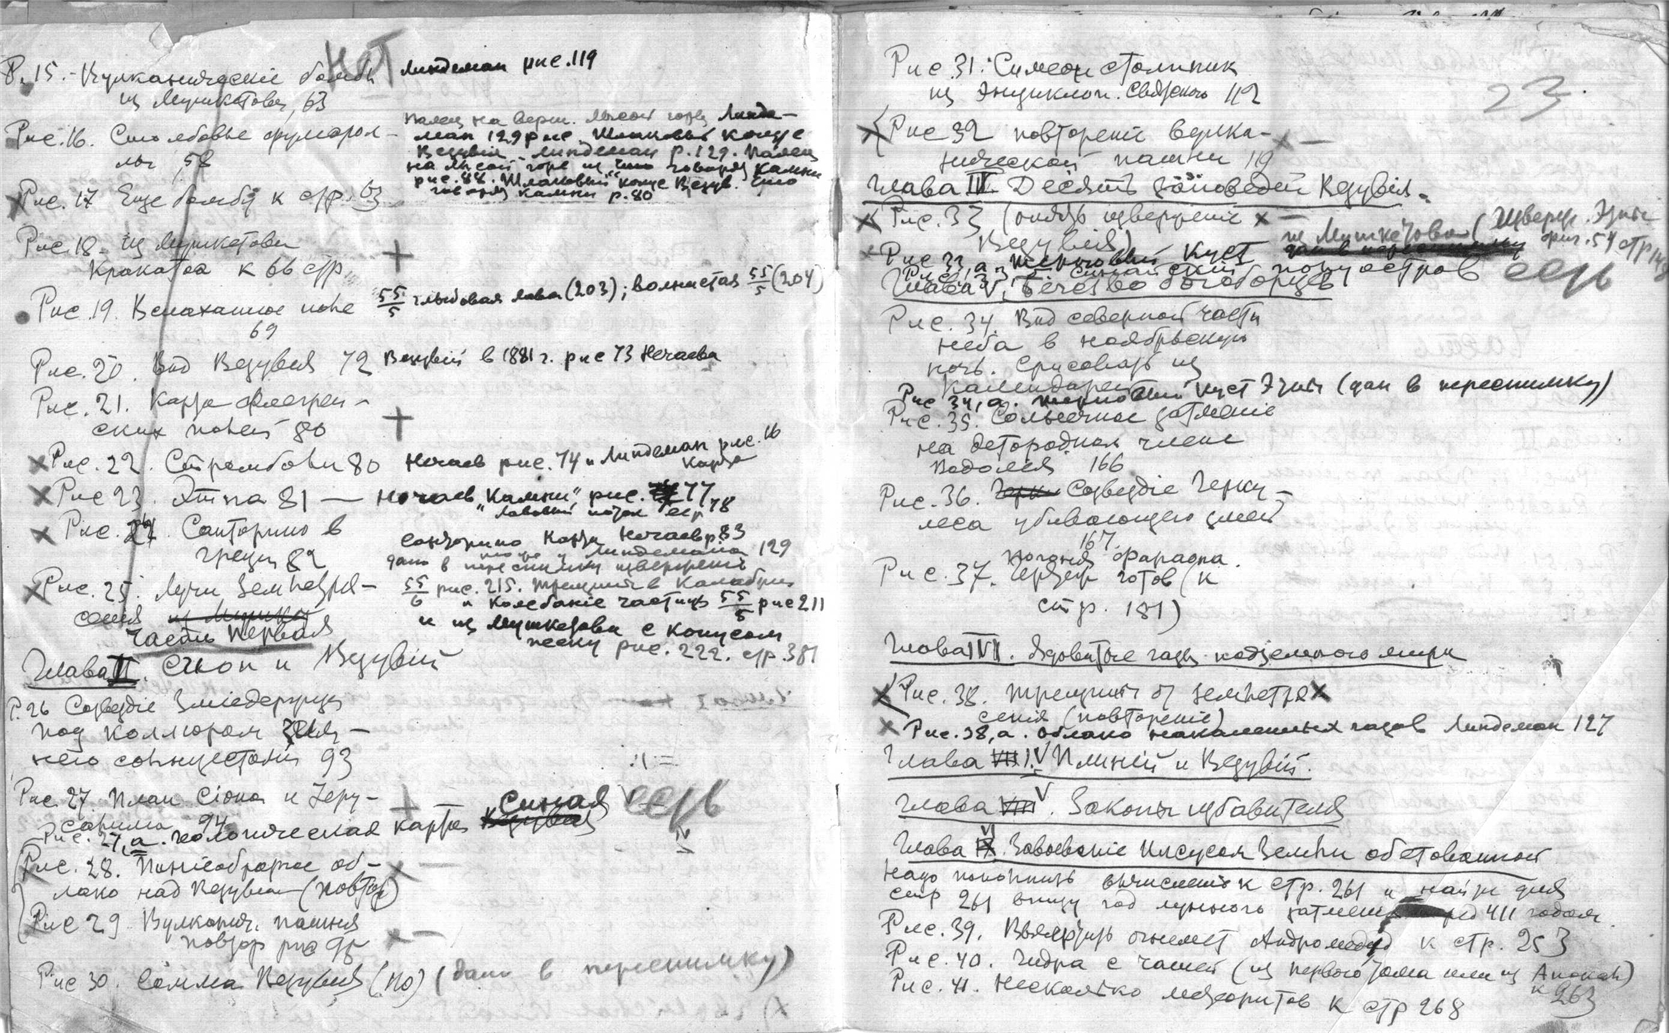 НѢТ
Р. 15. Вулканическіе бомбы Линдеман рис. 119
из Мушкетова, 63
Рис. 16. Столбовые фумарол-
лы 58
Палец на верш. Лысой горы Линде-
ман 129 рис. Шлаковый конус
Везувія Линдеман р. 129. Палец
на Лысой горе из что говорят Камни
рис. 88. Шлаковый конус Везув. Что
говорят камни р. 80
Рис. 17 Еще бомбы к стр. 63
Рис. 18. Из Мушкетова
Кракатоа к 66 стр
Рис. 19. Вспаханное поле 55/5 глыбовая лава (203); волнистая 55/5 (204)
69
Рис. 20. Вид Везувія 72 Везувій в 1881 г. рис 73 Нечаева
Рис. 21. Карта флегрей-
ских полей 80
Рис. 22. Стромболи 80 Нечаев рис. 74 и Линдеман рис. 16
карта
Рис 23. Этна 81 — Нечаев "Камни" рис. 77
"Лавовый поток" стр 78
Рис. 24 Санторино в
Греціи 82
Санторино Карта Нечаев р. 83
Линдемана 129
дано в переснимку изверженіе
Рис. 25. Лучи Землетря-
сенія из Мушке
55/6 рис. 215. Трещины в Калабріи
и Колебаніе частицы 55/5 рис 211
и из Мушкетова с конусом
песку рис. 222. стр. 381
Часть первая
Глава II. Сион и Везувій
Р. 26 Созвездіе Змиедержца
под коллюром Зим-
него солнцестоянія 93
Рис. 27. План Сіона и Іеру-
салима 94
Рис. 27, а. Геологическая карта Везувія Синая есть
Рис. 28. Пиніеобразное об-
лако над Везувіем (повтор)
Рис 29. Вулканич. пашня
повтор рис 95
Рис 30. Сомма Везувія (по) (дано в переснимку)
23
Рис. 31. Симеон столпник
из Энциклоп. Святского 112
Рис 32 повтореніе вулка-
нической пашни 19
Глава III. Десять заповедей Везувія.
Рис. 33 (опять изверженіе
Везувія)
из Мушкетова (Изверж. Этны
фиг. 54 стр
Рис 33 а Терновый Куст
Синайский полуостров есть
Глава V. Бегство богоборцев
Рис. 34. Вид северной части
неба в ноябрьскую
ночь. Срисовать из
Календарей
Рис 34, а. терновый куст Этны (дан в переснимку)
Рис. 35. Солнечное затменіе
на детородном члене
Водолея 166
Рис. 36. Герк Созвездіе Герку-
леса убивающего змей
167
Рис. 37. Погоня Фараона.
готов (к
стр. 181)
Глава IVI. Ядовитые газы подземного мира
Рис. 38. Трещины от землетря-
сенія (повтореніе)
Рис. 38, а. облако накаленных газов Линдеман 127
Глава VII IV Плиній и Везувій.
Глава VIII V. Законы избавителя
Глава IX VI. Завоеваніе Иисусом Земли обетованной
Надо пополнить вычисленія к стр. 261 и найти для
стр 261 внизу год лунного затменія перед 411 годом.
Рис. 39. огнемет Андромеду к стр. 253
Рис. 40. Гидра с чашей (из первого тома или из Апокал)
к 263
Рис. 41. Несколько метеоритов к стр 268